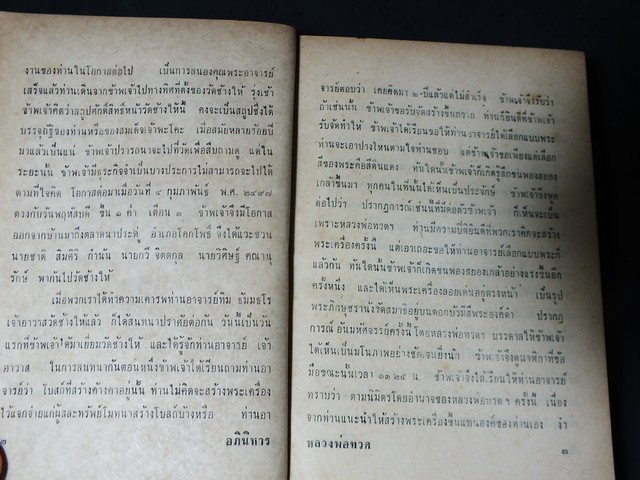 งานของท่านในโอกาสต่อไป เป็นการสนองคุณพระอาจารย์
เสร็จแล้วท่านเดินจากข้าพเจ้าไปทางทิศที่ตั้งของวัดช้างให้ รุ่งเช้า
ข้าพเจ้าคิดว่าสถูปศักดิ์สิทธิ์หน้าวัดช้างให้นี้ คงจะเป็นสถูปซึ่งได้
บรรจุอัฐิของท่านหรือของสมเด็จเจ้าพะโคะ เมื่อสมัยหลายร้อยปี
มาแล้วเป็นแน่ ข้าพเจ้าปรารถนาจะไปที่วัดเพื่อสืบถามดู แต่ใน
ระยะนั้น ข้าพเจ้ามีธุระกิจจำเป็นบางประการไม่สามารถจะไปได้
ตามที่ใจคิด โอกาสต่อมาเมื่อวันที่ ๔ กุมภาพันธ์ พ.ศ. ๒๔๙๗
ตรงกับวันพฤหัสบดี ขึ้น ๑ ค่ำ เดือน ๓ ข้าพเจ้าจึงมีโอกาส
ออกจากบ้านมาถึงตลาดนาประดู่ อำเภอโคกโพธิ์ จึงได้แวะชวน
นายชาติ สิมศิริ กำนัน นายกวี จิตตกุล นายวิศิษฐ์ คณานุ
รักษ์ พากันไปวัดช้างให้
เมื่อพวกเราได้ทำความเคารพท่านอาจารย์ทิม ธัมมธโร
เจ้าอาวาสวัดช้างให้แล้ว ก็ได้สนทนาปราศัยต่อกัน วันนี้เป็นวัน
แรกที่ข้าพเจ้าได้มาเยี่ยมวัดช้างให้ และได้รู้จักท่านอาจารย์ เจ้า
อาวาส ในการสนทนากันตอนหนึ่งข้าพเจ้าได้เรียนถามท่านอา
จารย์ว่า โบสถ์ที่สร้างค้างคาอยู่นั้น ท่านไม่คิดจะสร้างพระเครื่อง
ไว้แจกจ่ายแก่ผู้สละทรัพย์โมทนาสร้างโบสถ์บ้างหรือ ท่านอา
๒ อภินิหาร
จารย์ตอบว่า เคยคิดมา ๒ ปีแล้วแต่ไม่สำเร็จ ข้าพเจ้าจึงรับว่า
ถ้าเช่นนั้น ข้าพเจ้าขอรับจัดสร้างขึ้นถวาย ท่านก็ยินดีที่ข้าพเจ้า
รับจัดทำให้ ข้าพเจ้าได้เรียนขอให้ท่านอาจารย์ได้เลือกแบบพระ
ท่านจะเอาปางไหนตามใจท่านชอบ แต่ข้าพเจ้าขอเพียงแต่เลือก
สีของพระคือสีดินแดง ทันใดนั้นข้าพเจ้าก็เกิดรู้สึกขนพองสยอง
เกล้าขึ้นมา ทุกคนในที่นั้นได้เห็นเป็นประจักษ์ ข้าพเจ้าจึงพูด
ต่อไปว่า ปรากฏการณ์เช่นนี้ที่มีต่อตัวข้าพเจ้า ก็เห็นจะเป็น
เพราะหลวงพ่อทวดฯ ท่านมีความปีติยินดีที่พวกเราคิดจะสร้าง
พระเครื่องครั้งนี้ แต่เอาเถอะขอให้ท่านอาจารย์เลือกแบบพระที
แล้วกัน ทันใดนั้นข้าพเจ้าก็เกิดขนพองสยองเกล้าอย่างแรงขึ้นอีก
ครั้งหนึ่ง และได้เห็นพระเครื่องลอยเด่นอยู่ตรงหน้า เป็นรูป
พระภิกษุชรานั่งคัดสมาธิอยู่บนดอกบัวมีสีพระองค์ดำ ปรากฏ
การณ์ อันมหัศจรรย์ครั้งนี้ โดยหลวงพ่อทวดฯ บรรดาลให้ข้าพเจ้า
ได้เห็นเป็นมโนภาพอย่างชัดเจนยิ่งนัก ข้าพเจ้าจึงดูนาฬิกาที่ข้อ
มือขณะนั้นเวลา ๑๓.๒๕ น. ข้าพเจ้าจึงได้เรียนให้ท่านอาจารย์
ทราบว่า ตามนิมิตรโดยอำนาจของหลวงพ่อทวดฯ ครั้งนี้ เนื่อง
จากท่านแนะนำให้สร้างพระเครื่องขึ้นแทนองค์ของท่านเอง
หลวงพ่อทวด ๓